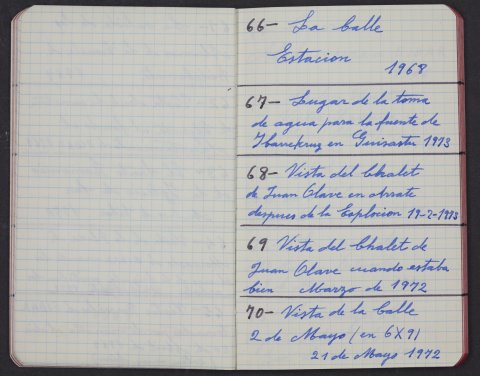 66- La Calle
Estacion
1968
67- Lugar de la toma
de agua para la fuente de
Ibarekruz en Guisastu 1973
68- Vista del Chalet
de Juan Olave en
despues de la Explocion 19-2-1973
69 Vista del Chalet de
Juan Olave cuando estaba
bien Marzo de 1972
70- Vista de la Calle
2 de Mayo (en 6X9)
21 de Mayo 1972